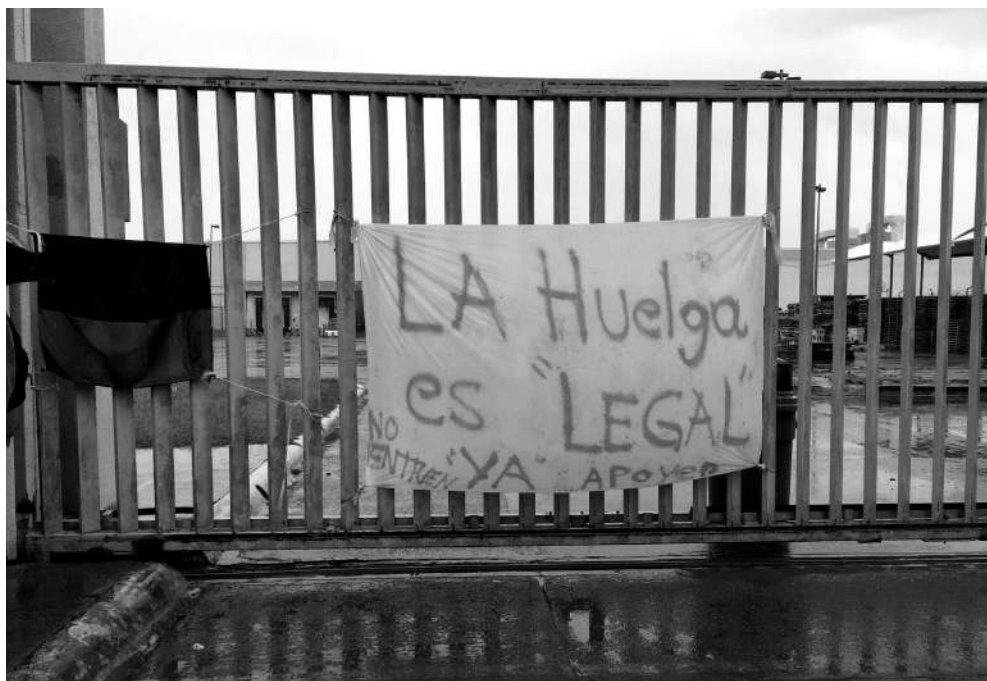 LA Huelga
es "LEGAL"
NO
ENTREN "YA" APOYEN